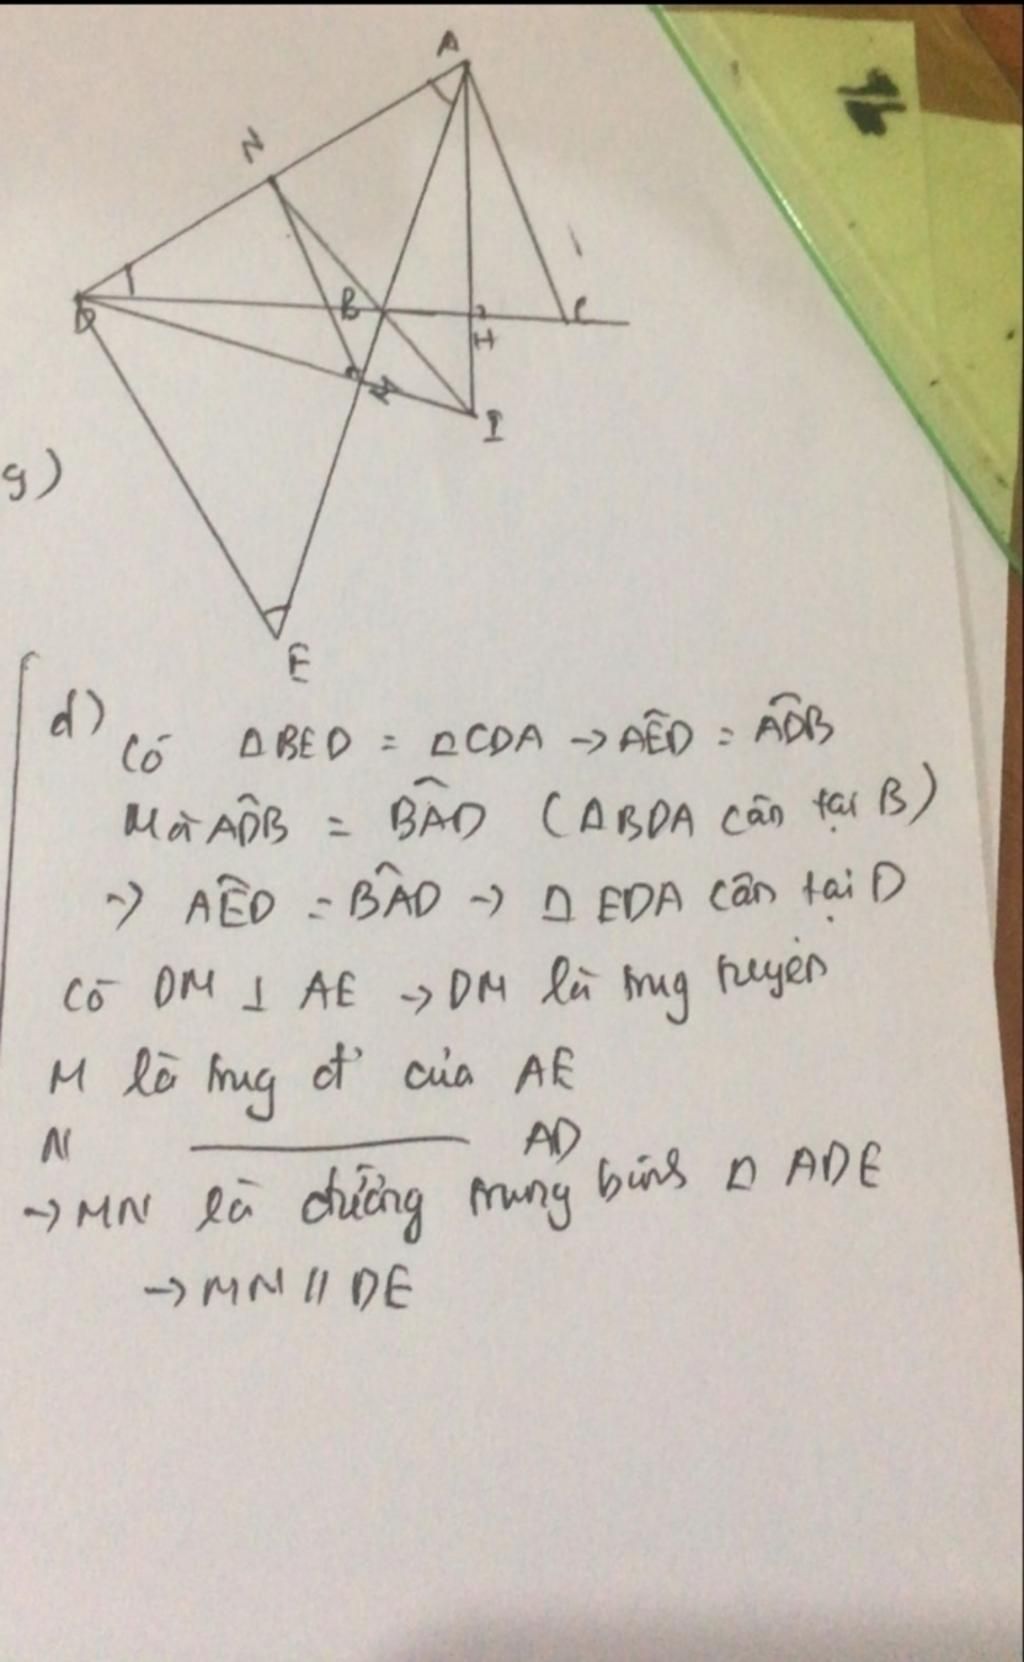 A
N
D
B
C
H
M
I
g)
E
d)
Có ΔBED = ΔCDA → AÊD = ADB̂
Mà AD̂B = BÂD (ΔBDA cân tại B)
→ AÊD = BÂD → Δ EDA cân tại D
Có DM ⊥ AE → DM là trug tuyến
M là trug đ' của AE
N ——— AD
→ MN là đường trung bình Δ ADE
→ MN // DE